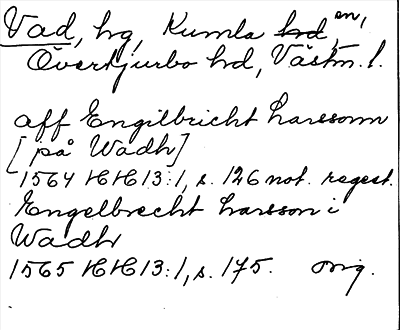 Vad, hg, Kumla hd en,
Övertjurbo hd, Västm. l.
aff Engilbricht Larssonn
[på Wadh]
1564 HH 13:1, s. 126 not. regest.
Engelbrecht Larsson i
Wadh
1565 HH 13:1, s. 175. orig.